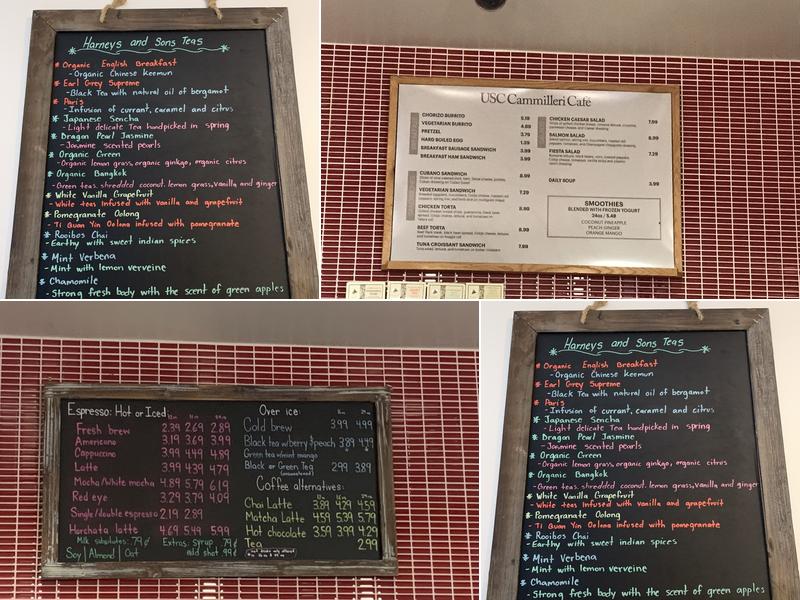 Harneys and Sons Teas
* Organic English Breakfast
- Organic Chinese Keemun
* Earl Grey Supreme
- Black Tea with natural oil of bergamot
* Paris
- Infusion of currant, caramel and citrus
* Japanese Sencha
- Light delicate Tea handpicked in spring
* Dragon Pearl Jasmine
- Jasmine scented pearls
* Organic Green
- Organic lemon grass, organic ginkgo, organic citrus
* Organic Bangkok
- Green teas, shredded coconut, lemon grass, vanilla and ginger
* White Vanilla Grapefruit
- White teas infused with vanilla and grapefruit
* Pomegranate Oolong
- Ti Quan Yin Oolong infused with pomegranate
* Rooibos Chai
- Earthy with sweet indian spices
* Mint Verbena
- Mint with lemon verveine
* Chamomile
- Strong fresh body with the scent of green apples
USC Cammilleri Café
CHORIZO BURRITO 5.19
VEGETARIAN BURRITO 4.89
PRETZEL 3.79
HARD BOILED EGG 1.29
BREAKFAST SAUSAGE SANDWICH 3.99
BREAKFAST HAM SANDWICH 3.99
CUBANO SANDWICH 8.99
VEGETARIAN SANDWICH 7.29
CHICKEN TORTA 8.99
BEEF TORTA 8.99
TUNA CROISSANT SANDWICH 7.99
CHICKEN CAESAR SALAD 7.99
SALMON SALAD 8.99
FIESTA SALAD 7.29
DAILY SOUP 3.99
SMOOTHIES
BLENDED WITH FROZEN YOGURT
24oz / 5.49
COCONUT PINEAPPLE
PEACH GINGER
ORANGE MANGO
Espresso: Hot or Iced
Fresh brew 2.39 2.69 2.89
Americano 3.19 3.69 3.99
Cappuccino 3.99 4.49 4.89
Latte 3.99 4.39 4.79
Mocha/White mocha 4.89 5.79 6.19
Red eye 3.29 3.79 4.09
Single/double espresso 2.19 2.89
Horchata latte 4.69 5.49 5.99
Milk substitutes: .79¢
Soy | Almond | Oat
Extras: syrup .79¢
add shot .99¢
Over ice:
Cold brew 3.99 4.99
Black tea w/berry & peach 3.89 4.49
Green tea w/mint mango
Black or Green Tea 2.99 3.89
Coffee alternatives:
Chai Latte 3.89 4.29 4.59
Matcha Latte 4.59 5.39 5.79
Hot chocolate 3.59 3.99 4.29
Tea 2.99
Harneys and Sons Teas
* Organic English Breakfast
- Organic Chinese Keemun
* Earl Grey Supreme
- Black Tea with natural oil of bergamot
* Paris
- Infusion of currant, caramel and citrus
* Japanese Sencha
- Light delicate Tea handpicked in spring
* Dragon Pearl Jasmine
- Jasmine scented pearls
* Organic Green
- Organic lemon grass, organic ginkgo, organic citrus
* Organic Bangkok
- Green teas, shredded coconut, lemon grass, vanilla and ginger
* White Vanilla Grapefruit
- White teas infused with vanilla and grapefruit
* Pomegranate Oolong
- Ti Quan Yin Oolong infused with pomegranate
* Rooibos Chai
- Earthy with sweet indian spices
* Mint Verbena
- Mint with lemon verveine
* Chamomile
- Strong fresh body with the scent of green apples